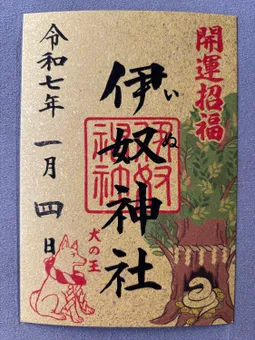 開運招福
伊奴神社
いぬ
令和七年 一月 四日
犬の王